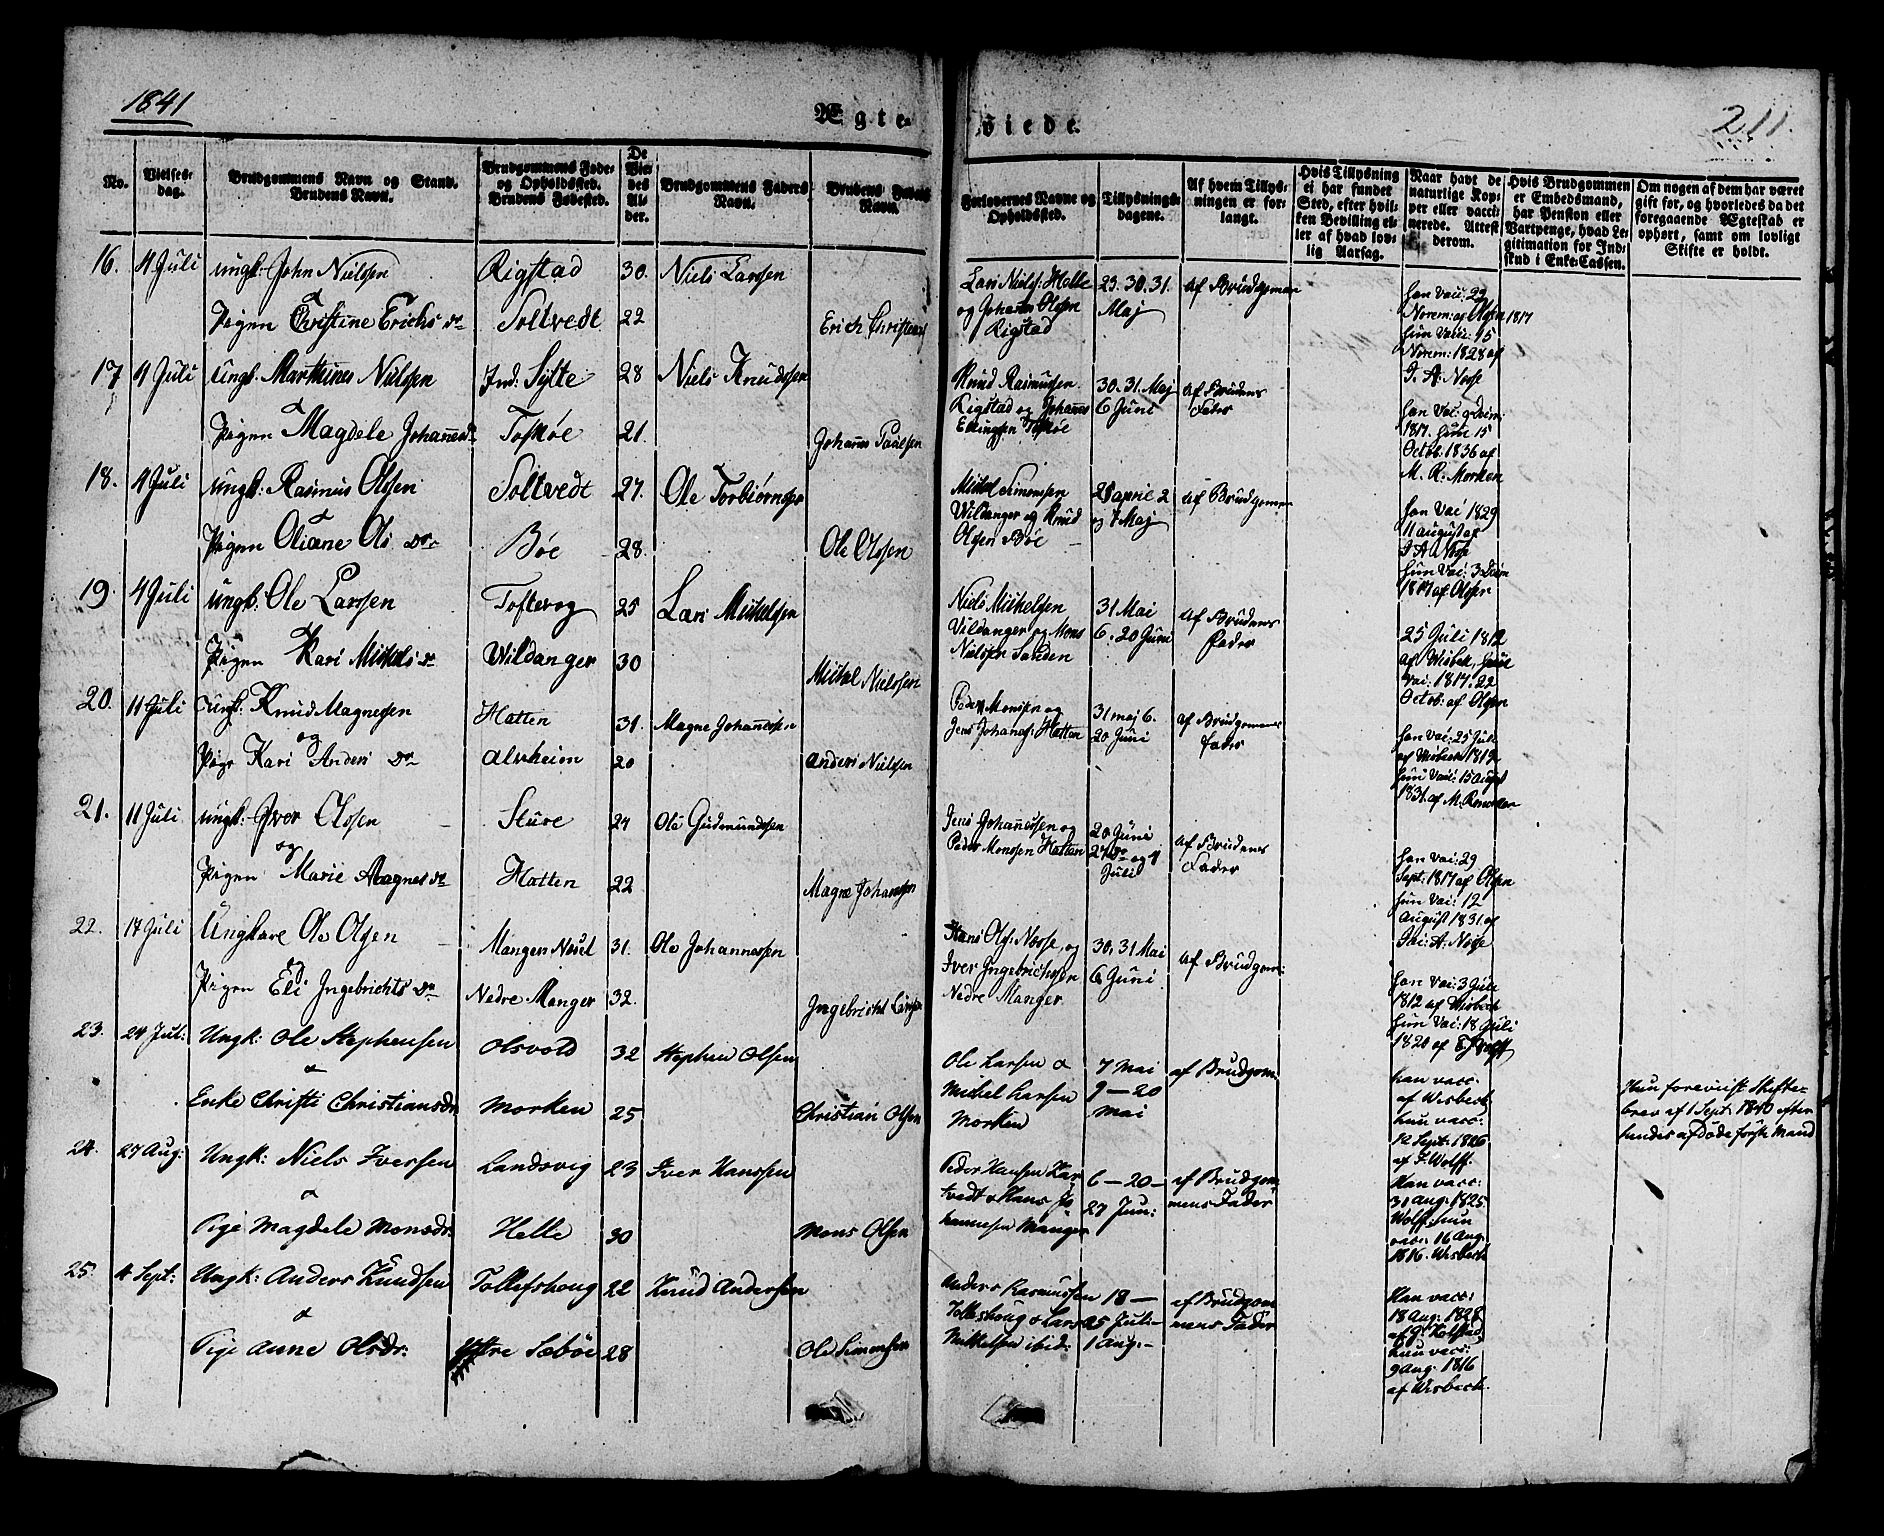 1841
Ægte-
viede.
211.
No.
Vielses-
dag.
Brudgommens Navn og Stand.
Brudens Navn.
Brudgommens Føde-
og Opholdssted.
Brudens Fødested.
De
Vie-
des
Al-
der.
Brudgommens Faders
Navn.
Brudens Faders
Navn.
Forlovernes Navne og
Opholdssted.
Tillysnings-
dagene.
Af hvem Tillys-
ningen er for-
langt.
Hvis Tillysning
ei har fundet
Sted, efter hvil-
ken Bevilling el-
ler af hvad lov-
lig Aarsag.
Naar havt de
naturlige Kop-
per eller vacci-
nerede. Attest
derom.
Hvis Brudgommen
er Embedsmand,
har Pension eller
Vartpenge, hvad Le-
gitimation for Ind-
skud i Enke-Cassen.
Om nogen af dem har været
gift før, og hvorledes da det
foregaaende Ægteskab er
ophørt, samt om lovligt
Skifte er holdt.
16. 4 Juli Ungk: John Nielsen Rigstad 30. Niels Larssen
&
Pigen Christine Erichs Dr Soltvedt 22 Erich Christians
Lars Niels: Helle
og Johann Olsen
Rigstad
23. 30. 31.
Maj
af Brudgomen
han vaci: 22
Novm: af Olsen 1817
hun vaci: 15
Novm: 1828 af
J. A. Nesse
17 4 Juli Ungk: Marthines Nielsen Ind: Sylte 28 Niels Knudssen
&
Pigen Magdele Johannesd Toskøe 21. Johans Paulsen
Knud Rasmussen
Rigstad og Johans
Ellingsen Toskøe
30. 31. Maj
6 Juni
af Brudens
Fader
han Vai: 9 Deim:
1817. hun 15
Octob: 1836 af
M. R. Morken
18. 4 Juli Ungk: Rasmus Olsen Soltvedt 27. Ole Torbiørnsen
&
Pigen Oliane Ols Dr Bøe 28. Ole Olssen
Mikkel Simonsen
Wildanger og Knud
Olsen Bøe
25 april 2
og 7 Maj
af Brudgomen
han Vai 1829
11 august af
J A Nesse
hun Vai: 3 Deim
1817 af Olsen
19. 4 Juli Ungk: Ole Larssen Tofterog 25 Lars Mikkelsen
&
Pigen Kari Mikkels Dr Wildanger 30 Mikkel Nielssen
Niels Mikkelsen
Vildanger og Mons
Nielsen Sanden
31 Mai
6. 20 Juni
af Brudens
Fader
25 Juli 1812
af Wisbek, hun
Vai: 1817. 22
Octob: af Olsen
20. 11 Juli Ungk: Knud Magnesen Hatten 31. Magne Johansen
og
Pige Kari Anders Dr Alvheim 20 Anders Nielsen
Peder Monsen og
Jens Johans: Hatten
31 maj 6.
20 Juni
af Brudgomens
Fader
han Vai: 25 Juli
af Wisbech 1812
hun Vai: 15 August
1831. af M. R morken
21. 11 Juli Ungk: Iver Olssen Sture 24 Ole Gudmundssen
og
Pigen Marie Magnes Dr Hatten 22 Magne Johansen
Jens Johannessen og
Peder Monssen Hatten
20 Juni
27 Do og 4
Juli
af Brudens
Fader
han Vai: 29
Sept: 1817 af Olsen
hun Vai: 12
August 1831. af
J. A: Nesse
22. 17 Juli Ungkare Ole Olsen Manger Nesset 31. Ole Johannessen
Pigen Eli Ingebrichts Dr Nedre Manger 32. Ingebricht Larsen
Hans Ols: Nesse, og
Iver Ingebrichssen
Nedre Manger
30, 31 Mai
6 Juni
af Brudgom:
han Vai: 3 Juli
1812 af Wisbech
hun Vai: 18 Juli
1820 af F. Wolff
23. 24 Jul: Ungk: Ole Stephensen Olsvold 32 Stephen Olsen
&
Enke Christi Christiansdr Morken 25 Christian Olsen
Ole Larsen &
Michel Larsen
Morken
7 Mai
9 — 20
Mai
af Brudgom
han vacc:
af Wisbeck
hun vacc:
12 Sept: 1816
af F. Wolff.
Hun foreviist Skifte-
brev af 1 Sept: 1840 efter
hendes afdøde første Mand
24. 27 Aug: Ungk: Niels Iversen Landsvig 23 Iver Hanssen
&
Pige Magdele Monsdr. Helle 30 Mons Olsen
Peder Hansen Har
tvedt & Hans Jo
hannesen Manger
6 — 20 —
27 Jun:
af Brudgom
mens Fader
Han vacc:
31 Aug: 1825
Wolff: hun
vacc. 16 Aug.
1816. Wisbeck
25. 4 Sept: Ungk: Anders Knudsen Tollefshoug 22 Knud Andersen
&
Pige Anne Olsdr: Yttre Sæbøe 28 Ole Simonsen
Anders Rasmussen
Tollefshoug & Lars
Mikkelsen ibid:
18 —
25 Juli —
1 Aug: —
af Brudgom
mens Fader
Han vacc:
18 Aug: 1828
af G Kolstad
hun vacc:
9 Aug: 1816
af Wisbeck.